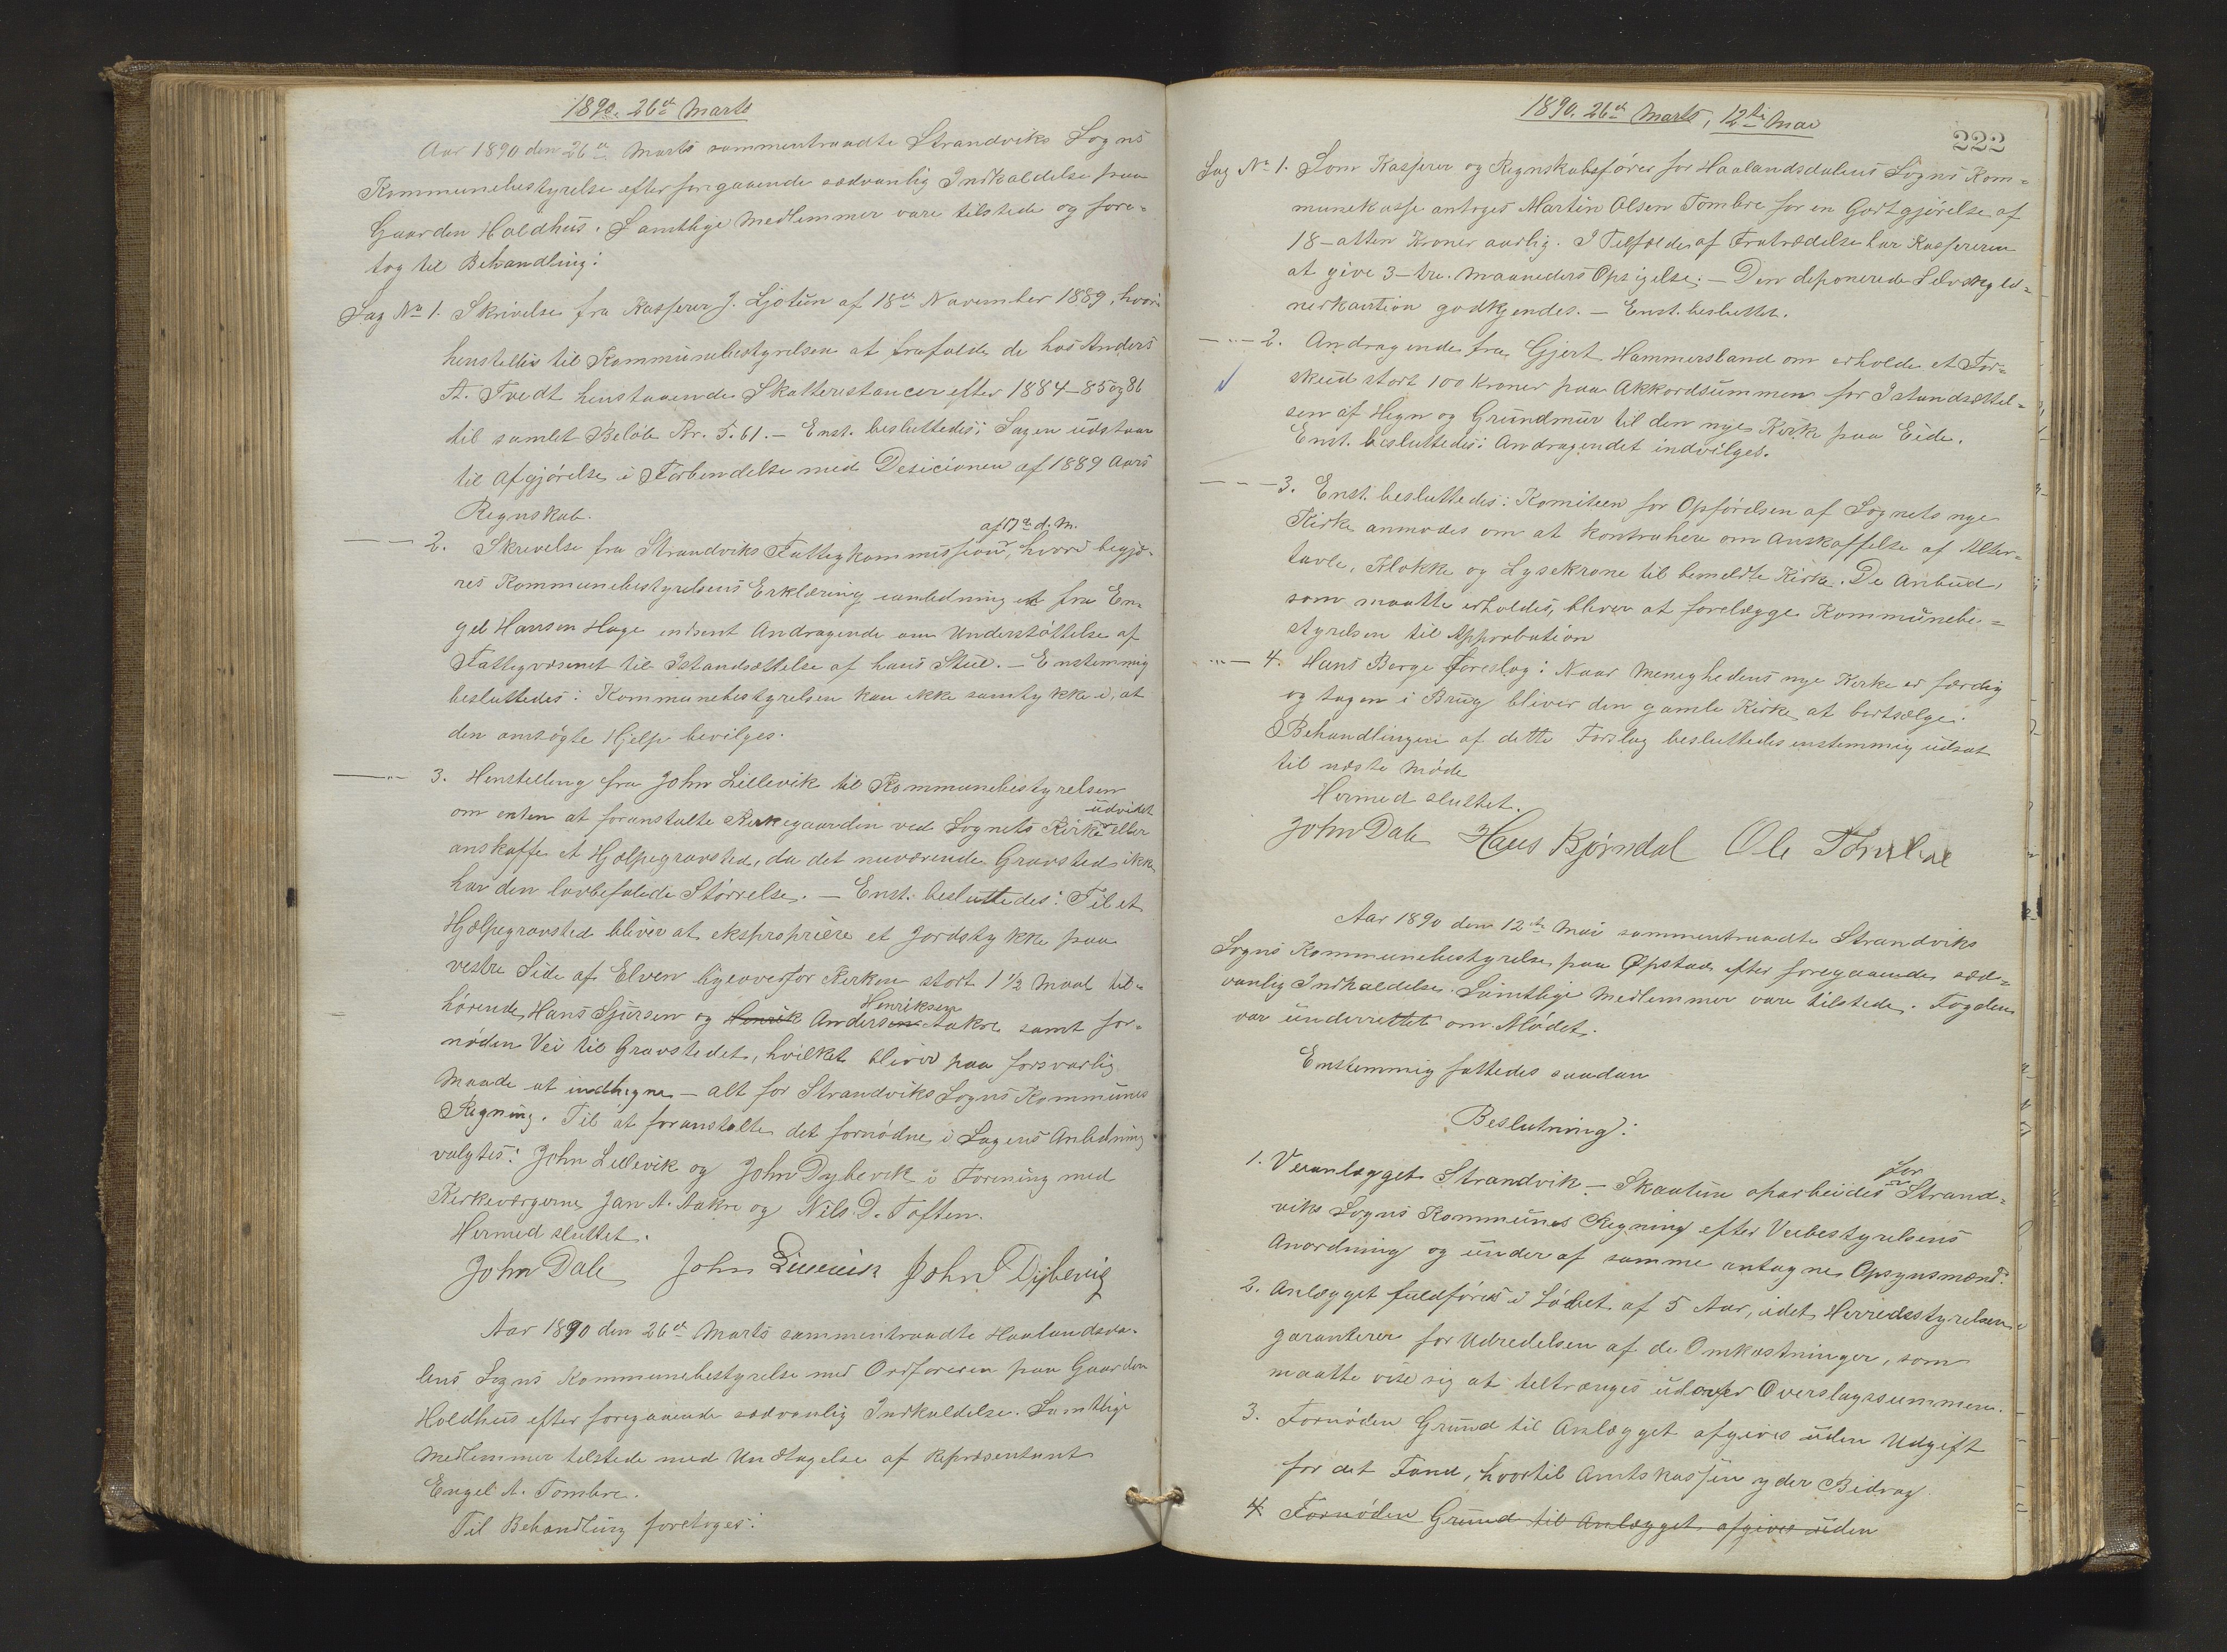 1890. 26de Marts
Aar 1890 den 26de Marts sammentraadte Strandviks Sogns
Kommunebestyrelse efter forgaaende sædvanlig Indkaldelse paa
Gaarden Holdhus. Samtlige Medlemmer vare tilstede og fore-
tog til Behandling:
Sag No 1. Skrivelse fra Kasserer J. Ljotun af 18de November 1889, hvori
henstilles til Kommunebestyrelsen at frafalde de hos Anders
A. Tvedt henstaaende Skatterestancer efter 1884-85 og 86
til samlet Beløb Kr. 5.61. - Enst. besluttedes: Sagen udstaar
til Afgjørelse i Forbindelse med Desicionen af 1889 Aars
Regnskab.
af 17de d. M.
— " — 2. Skrivelse fra Strandviks Fattigkommission, hvori begjæ-
res Kommunebestyrelsens Erklæring i anledning et fra En-
gel Hansen Hage indsent Andragende om Understøttelse af
Fattigvæsenet til Istandsættelse af hans Stue. - Enstemmig
besluttedes: Kommunebestyrelsen kan ikke samtykke i, at
den ansøgte Hjelp bevilges.
— " — 3. Henstilling fra John Lillevik til Kommunebestyrelsen
udvidet
om enten at foranstalte Kirkegaarden ved Sognets Kirke eller
anskaffe et Hjælpegravsted, da det nuværende Gravsted ikke
har den lovbefalede Størrelse. - Enst. besluttedes: Til et
Hjælpegravsted bliver at ekspropriere et Jordstykke paa
vestre Side af Elven ligeoverfor Kirken stort 1 1/2 Maal til-
Henriksen
hørende Hans Sjursen og Henrik Andersen Aakre samt for-
nøden Vei til Gravstedet, hvilket bliver paa forsvarlig
Maade at indhegne - alt for Strandviks Sogns Kommunes
Regning. Til at foranstalte det fornødne i Sagens Anledning
valgtes: John Lillevik og John Dybevik i Forening med
Kirkeværgerne Jan A. Aakre og Nils D. Toften.
Hermed sluttet.
John Dale John Lillevik John Dybevig
Aar 1890 den 26de Marts sammentraadte Haalandsda-
lens Sogns Kommunebestyrelse med Ordføreren paa Gaarden
Holdhus efter foregaaende sædvanlig Indkaldelse. Samtlige
Medlemmer tilstede med Undtagelse af Repræsentant
Engel A. Tombre.
Til Behandling foretoges:
1890. 26de Marts, 12te Mai
222
Sag No 1. Som Kasserer og Regnskabsfører for Haalandsdalens Sogns Kom-
munekasse antoges Martin Olsen Tombre for en Godtgjørelse af
18 - atten Kroner aarlig. I Tilfælde af Fratrædelse har Kassereren
at give 3 - tre Maaneders Opsigelse. - Den deponerede Selvskyld-
nerkaution godkjendes. - Enst. besluttet.
— " — 2. Andragende fra Gjert Hammersland om erholde et For-
skud stort 100 Kroner paa Akkordsummen for Istandsættel-
sen af Hegn og Grundmur til den nye Kirke paa Eide.
Enst. besluttedes: Andragendet indvilges.
— " — 3. Enst. besluttedes: Komiteen for Opførelsen af Sognets nye
Kirke anmodes om at kontrahere om Anskaffelse af Alter-
tavle, Klokke og Lysekrone til bemeldte Kirke. De Anbud,
som maatte erholdes, bliver at forelægge Kommunebe-
styrelsen til Approbation
— " — 4. Hans Berge foreslog: Naar Menighedens nye Kirke er færdig
og tagen i Brug bliver den gamle Kirke at bortsælge.
Behandlingen af dette Forslag besluttedes enstemmig udsat
til næste Møde
Hermed sluttet.
John Dale Hans Bjørndal Ole Tombre
Aar 1890 den 12te Mai sammentraadte Strandviks
Sogns Kommunebestyrelse paa Opstad efter foregaaende sæd-
vanlig Indkaldelse. Samtlige Medlemmer vare tilstede. Fogden
var underrettet om Mødet.
Enstemmig fattedes saadan
Beslutning:
for
1. Veianlægget Strandvik - Skaatun oparbeides Strand-
viks Sogns Kommunes Regning efter Veibestyrelsens
Anordning og under af samme antagne Opsynsmænd.
2. Anlægget fuldføres i Løbet af 5 Aar, idet Herredsstyrelsen
garanterer for Udredelsen af de Omkostninger, som
maatte vise sig at tiltrænges udover Overslagssummen.
3. Fornøden Grund til Anlægget afgives uden Udgift
for det Fond, hvortil Amtskassen yder Bidrag.
4 Fornøden Grund til Anlægget afgives uden